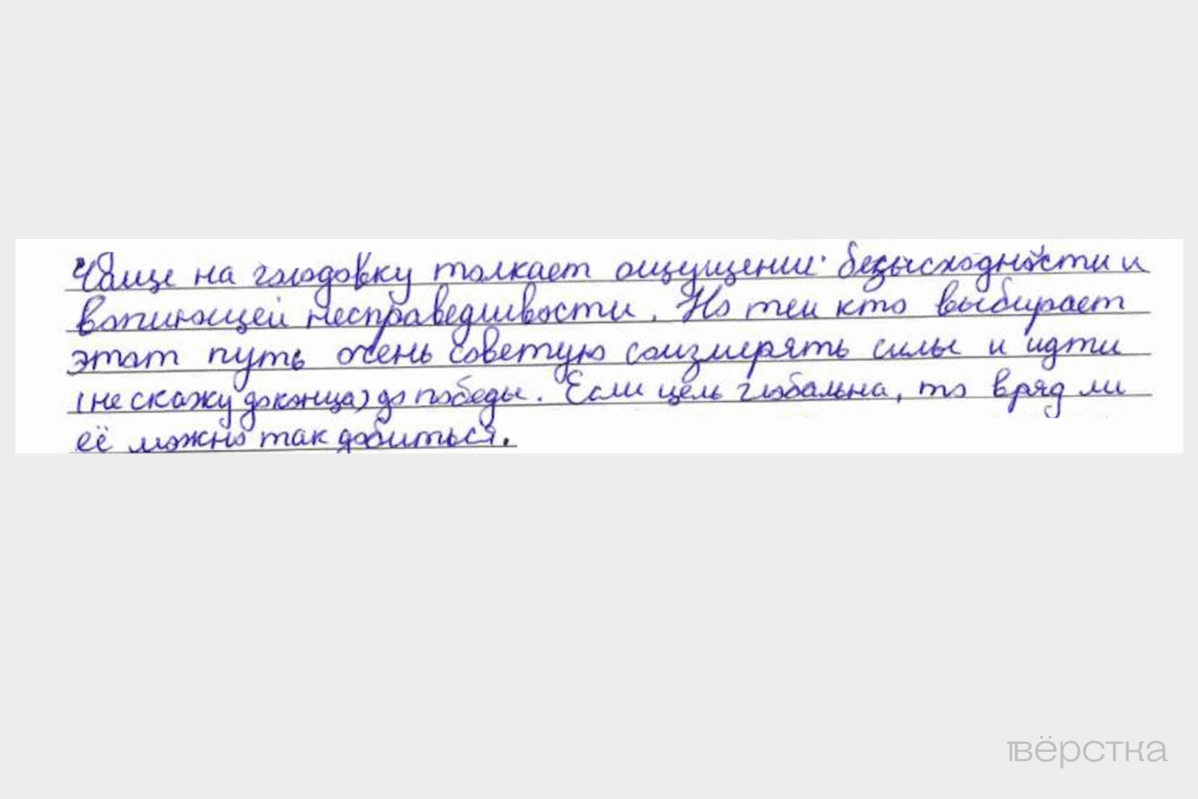 Чаще на голодовку толкает ощущение безысходности и
вопиющей несправедливости. Но тем кто выбирает
этот путь очень советую соизмерять силы и идти
(не скажу до конца) до победы. Если цель глобальна, то вряд ли
её можно так добиться.
вёрстка